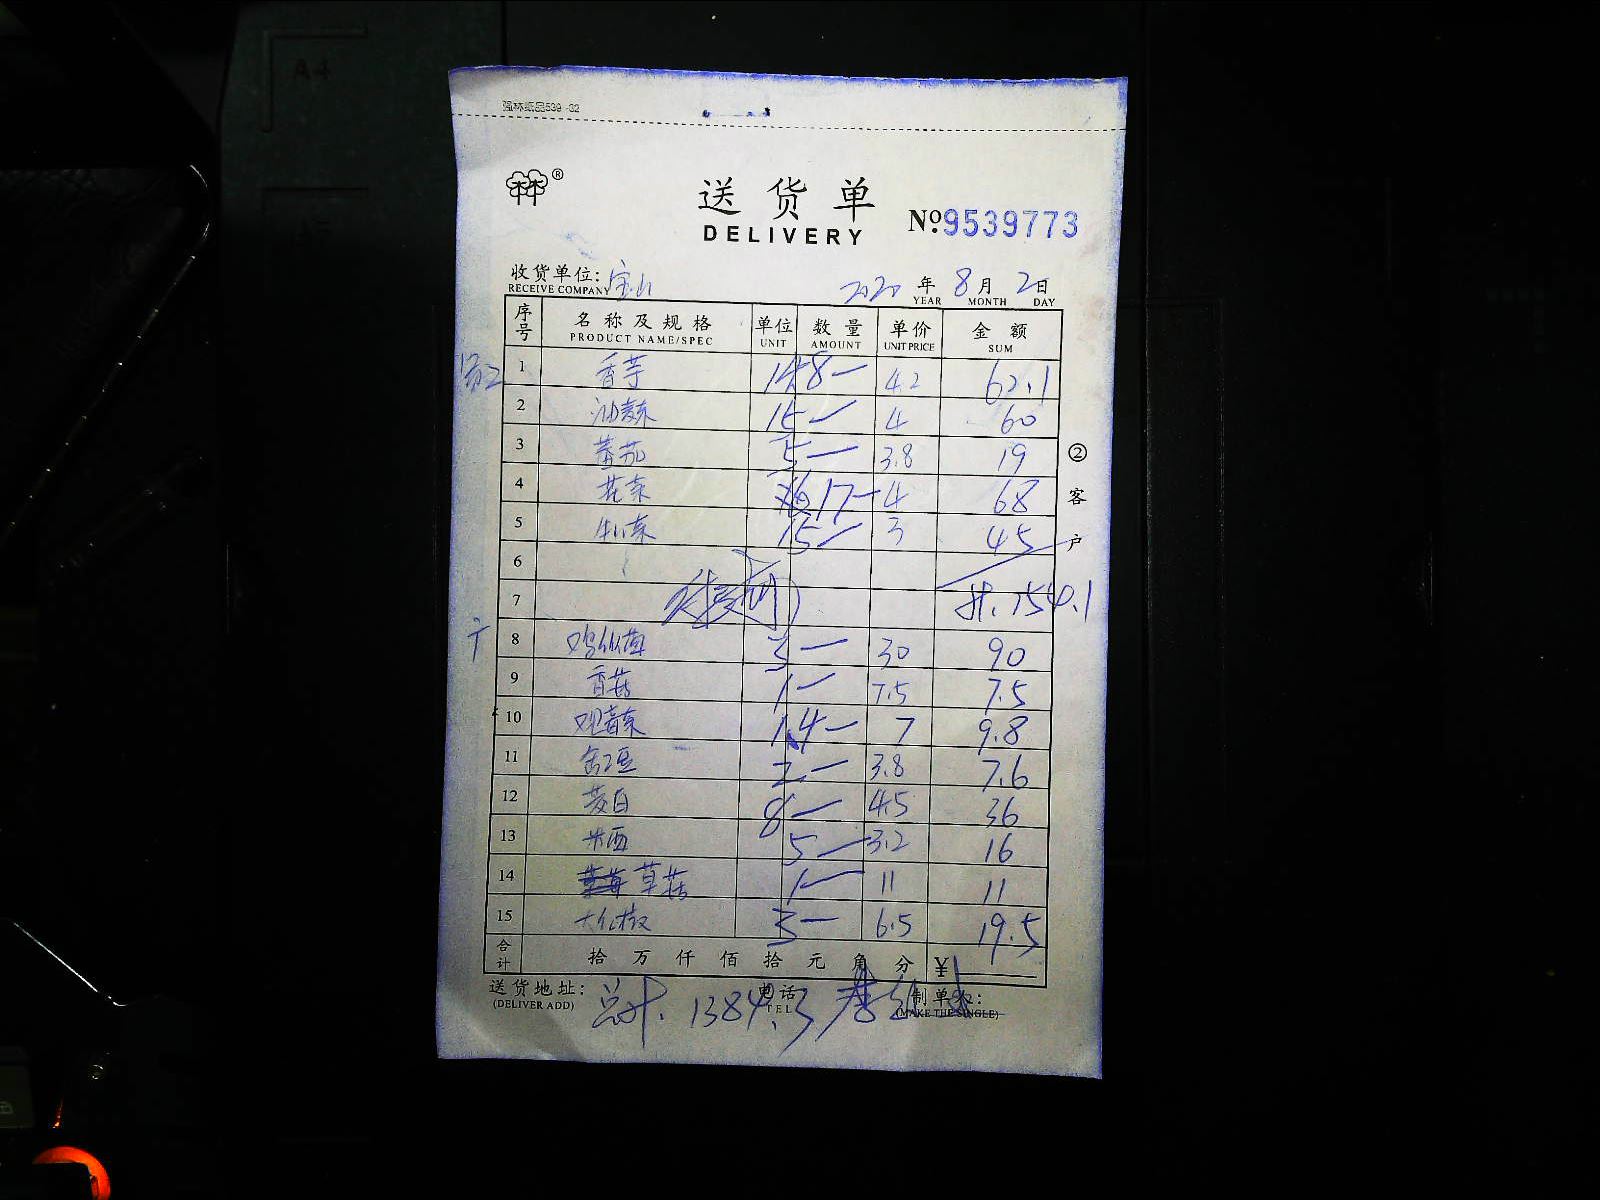 强林纸品539-32
送货单
DELIVERY
№:9539773
收货单位:宝山 2020年8月2日
RECEIVE COMPANY YEAR MONTH DAY
序号 名称及规格 单位 数量 单价 金额
PRODUCT NAME/SPEC UNIT AMOUNT UNIT PRICE SUM
1 香芋 14.8 4.2 62.1
2 油麦菜 15 4 60
3 蕃茄 5 3.8 19
4 花菜 17 4 68
5 15 3 45
6
7 计.254.1
8 鸡纵菌 3 30 90
9 香菇 1 7.5 7.5
10 观音菜 1.4 7 9.8
11 缸豆 2 3.8 7.6
12 茭白 8 4.5 36
13 米西 5 3.2 16
14 草菇 1 11 11
15 大红椒 3 6.5 19.5
合计 拾 万 仟 佰 拾 元 角 分 ¥
②客户
送货地址: 电话 制单:
(DELIVER ADD) TEL (MAKE THE SINGLE)
总计.1384.3
A4